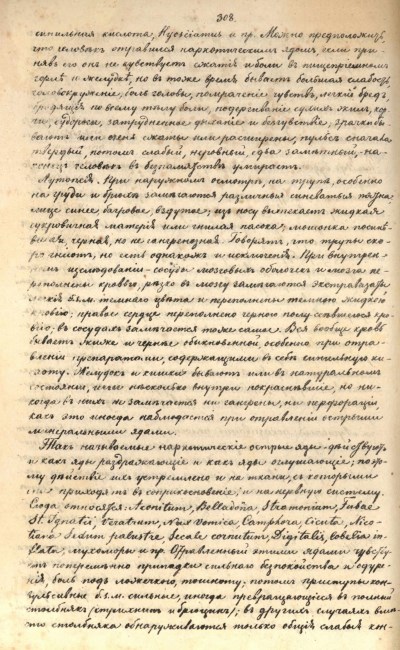 308.
синильная кислота, Hyosciamus и пр. Можно предположить,
что человѣкъ отравился наркотическимъ ядомъ, если при-
нявъ его онъ не чувствуетъ сжатія и боли въ пищепріемномъ
горлѣ и желудкѣ, но въ тоже время бываетъ большая слабость,
головокруженіе, боль головы, помраченіе чувствъ, легкій бредъ,
по всему тѣлу боли, подергиваніе сухихъ жилъ,
судороги, затрудненное дыханіе и безчувствіе, зрачки бы-
ваютъ или очень сжаты или расширены, пульсъ сначала
твердый, потомъ слабый, неровный, едва замѣтный, на-
конецъ человѣкъ въ безпамятствѣ умираетъ.
Аутопсія. При наружномъ осмотрѣ, на трупѣ, особенно
на груди и брюхѣ замѣчаются различныя синеватыя пятна,
лице синее, багровое, вздутое; изъ носу вытекаетъ жидкая
сукровичная матерія или гнилая пасока; мошонка
черная, но не гангренозная. Говорятъ, что трупы ско-
ро гніютъ, но есть однакожъ и исключенія. При внутрен-
немъ изслѣдованіи – сосуды мозговыхъ оболочекъ и мозга пе-
реполнены кровью, рѣдко въ мозгу замѣчаются экстравазаты,
легкія б. м. темнаго цвѣта и переполнены темною жидкою
кровью; правое сердце переполнено черною полусвѣтившеюся кро-
вью; въ сосудахъ замѣчается тоже самое. Вся вообще кровь
бываетъ жиже и чернѣе обыкновенной, особенно при отра-
вленіи препаратами, содержащими въ себѣ синильную ки-
слоту. Желудокъ и кишки бываютъ или въ натуральномъ
состояніи, или нѣсколько внутри покраснѣвшіе, но ни-
когда въ нихъ не замѣчается ни гангрены, ни перфорацій,
какъ это иногда наблюдается при отравленіи острыми
минеральными ядами.
Такъ называемые наркотическіе острые яды дѣйствуютъ
и какъ яды раздражающіе и какъ яды оглушающіе; пото-
му дѣйствіе ихъ устремлено и не ткани, съ которыми
приходятъ въ соприкосновеніе, и на нервную систему.
Сюда относятся: Aconitum, Belladona, Stramonium, Fabae
St. Ignatii, Veratrum, Nux Vomica, Camphora, Cicuta, Nico-
tiana, Sedum palustre, Secale cornutum, Digitalis, Lobelia in-
flata, мухоморы и пр. Отравленный этими ядами чувству-
етъ поперемѣнно припадки сильнаго безпокойства и одуре-
нія, боль подъ ложечкою, тошноту; потомъ приступы кон-
вульсивные б. м. сильные, иногда превращающіеся въ полный
столбнякъ (стрихнинъ и бруцинъ); въ другихъ случаяхъ вмѣ-
сто столбняка обнаруживаются только общія слабыя кон-